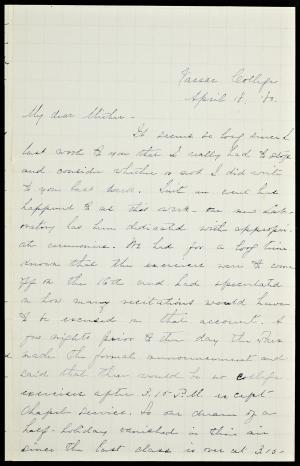 Vassar College
April 18, '80.
My dear Mother -
It seems so long since I
last wrote to you that I really had to stop
and consider whether or not I did write
to you last week. But an event has
happened to us this week - our new Lab-
oratory has been dedicated with appropri-
ate ceremonies. We had for a long time
known that the exercises were to come
off on the 16th and had speculated
on how many recitations would
be excused on that account. A
few nights prior to the day the Pres.
made the formal announcement and
said that there would be no college
exercises after 3.10 P.M. except
Chapel service. So our dream of a
half-holiday vanished in thin air
since the last class is over at 3.10-